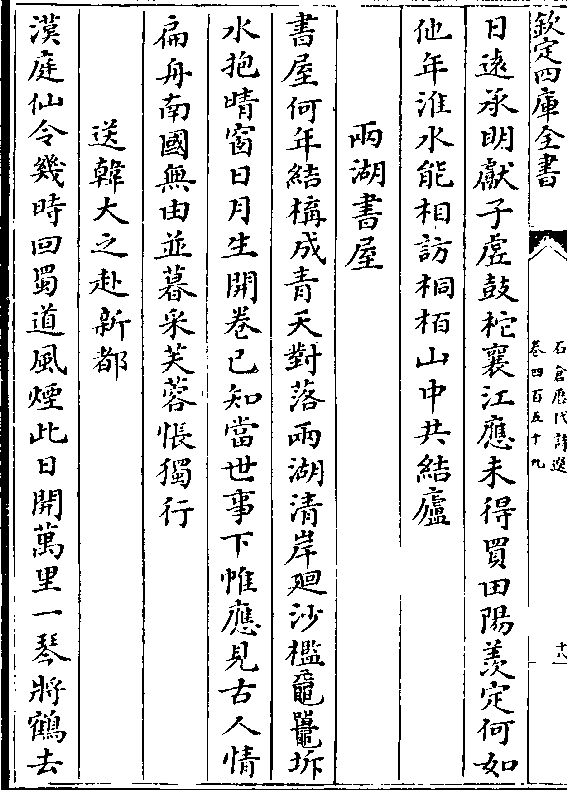 欽定四庫全書
石倉歷代詩選
卷四百五十九
十八
日遠承明獻子虛鼓柁襄江應未得買田陽羨定何如
他年淮水能相訪桐栢山中共結廬
兩湖書屋
書屋何年結構成青天對落兩湖清岸廻沙檻黿鼉坼
水抱晴窗日月生開卷已知當世事下帷應見古人情
扁舟南國無由並暮采芙蓉悵獨行
送韓大之赴新都
漢庭仙令幾時回蜀道風煙此日開萬里一琴將鶴去